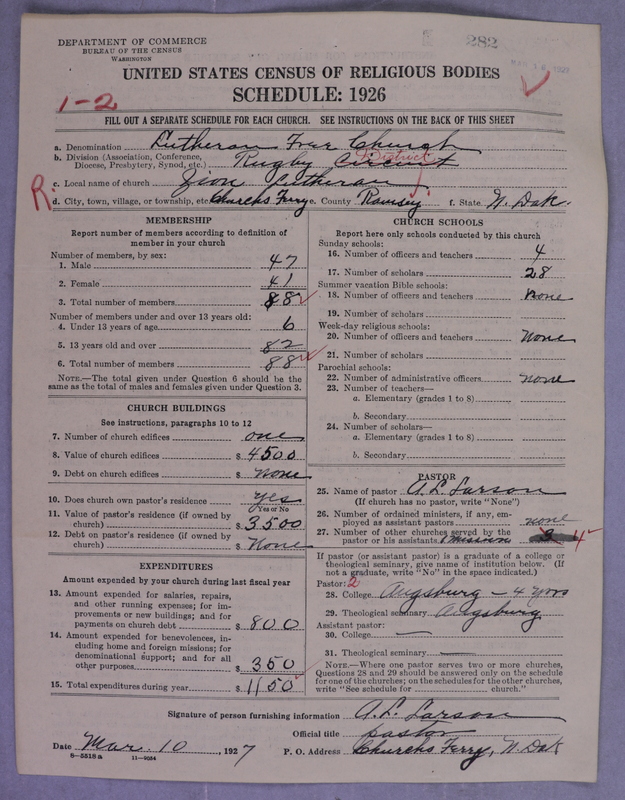 282
DEPARTMENT OF COMMERCE
BUREAU OF THE CENSUS
WASHINGTON
UNITED STATES CENSUS OF RELIGIOUS BODIES
1-2
SCHEDULE: 1926
FILL OUT A SEPARATE SCHEDULE FOR EACH CHURCH. SEE INSTRUCTIONS ON THE BACK OF THIS SHEET
a. Denomination Lutheran Free Church
b. Division (Association, Conference, Diocese, Presbytery, Synod, etc.) Rugby Circuit District
c. Local name of church Zion Lutheran
R
d. City, town, village, or township, etc. Churchs Ferry e. County Ramsey f. State N. Dak.
MEMBERSHIP
Report number of members according to definition of member in your church
Number of members, by sex:
1. Male 47
2. Female 41
3. Total number of members 88
Number of members under and over 13 years old:
4. Under 13 years of age 6
5. 13 years old and over 82
6. Total number of members 88
NOTE.—The total given under Question 6 should be the same as the total of males and females given under Question 3.
CHURCH BUILDINGS
See instructions, paragraphs 10 to 12
7. Number of church edifices one
8. Value of church edifices $ 4500
9. Debt on church edifices $ None
10. Does church own pastor's residence yes
Yes or No
11. Value of pastor's residence (if owned by church) $ 3500
12. Debt on pastor's residence (if owned by church) $ None
EXPENDITURES
Amount expended by your church during last fiscal year
13. Amount expended for salaries, repairs, and other running expenses; for improvements or new buildings; and for payments on church debt $ 800
14. Amount expended for benevolences, including home and foreign missions; for denominational support; and for all other purposes $ 350
15. Total expenditures during year $ 1150
CHURCH SCHOOLS
Report here only schools conducted by this church
Sunday schools:
16. Number of officers and teachers 4
17. Number of scholars 28
Summer vacation Bible schools:
18. Number of officers and teachers none
19. Number of scholars
Week-day religious schools:
20. Number of officers and teachers None
21. Number of scholars
Parochial schools:
22. Number of administrative officers none
23. Number of teachers—
a. Elementary (grades 1 to 8)
b. Secondary
24. Number of scholars—
a. Elementary (grades 1 to 8)
b. Secondary
PASTOR
25. Name of pastor A. L. Larson
(If church has no pastor, write "None")
26. Number of ordained ministers, if any, employed as assistant pastors none
27. Number of other churches served by the pastor or his assistants 4
If pastor (or assistant pastor) is a graduate of a college or theological seminary, give name of institution below. (If not a graduate, write "No" in the space indicated.)
Pastor: 2
28. College Augsburg — 4 yrs
29. Theological seminary Augsburg
Assistant pastor:
30. College —
31. Theological seminary —
NOTE.—Where one pastor serves two or more churches, Questions 28 and 29 should be answered only on the schedule for one of the churches; on the schedules for the other churches, write "See schedule for church."
Signature of person furnishing information A. L. Larson
Official title pastor
Date Mar. 10, 1927
P. O. Address Churchs Ferry, N. Dak
8-5518a 11-9034